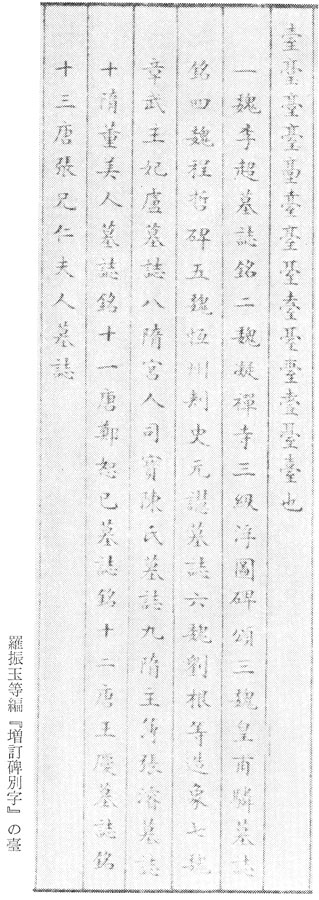 臺臺臺臺臺臺臺臺臺臺臺臺臺臺也
一魏李超墓誌銘二魏凝禪寺三級浮圖碑頌三魏皇甫驎墓誌
銘四魏程哲碑五魏恆州刺史元譿墓誌六魏劉根等造象七魏
章武王妃盧墓誌八隋宮人司寶陳氏墓誌九隋主簿張濬墓誌
十隋董美人墓誌銘十一唐鄭恕己墓誌銘十二唐王墓誌銘
十三唐張兄仁夫人墓誌
羅振玉等編『増訂碑別字』の臺